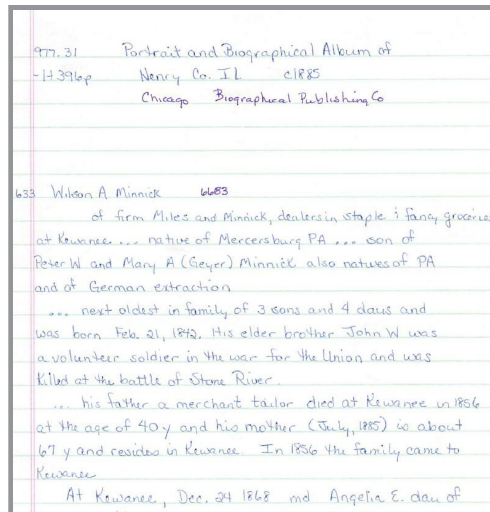 977.31 Portrait and Biographical Album of
-H396p Henry Co. IL c1885
Chicago Biographical Publishing Co
633 Wilson A Minnick 6683
of firm Miles and Minnick, dealers in staple & fancy groceries
at Kewanee ... native of Mercersburg PA ... son of
Peter W and Mary A (Geyer) Minnick also natives of PA
and of German extraction
... next oldest in family of 3 sons and 4 daus and
was born Feb. 21, 1842. His elder brother John W was
a volunteer soldier in the war for the Union and was
killed at the battle of Stone River.
... his father a merchant tailor died at Kewanee in 1856
at the age of 40 y and his mother (July, 1885) is about
67 y and resides in Kewanee In 1856 the family came to
Kewanee
At Kewanee, Dec. 24 1868 md Angelia E. dau of